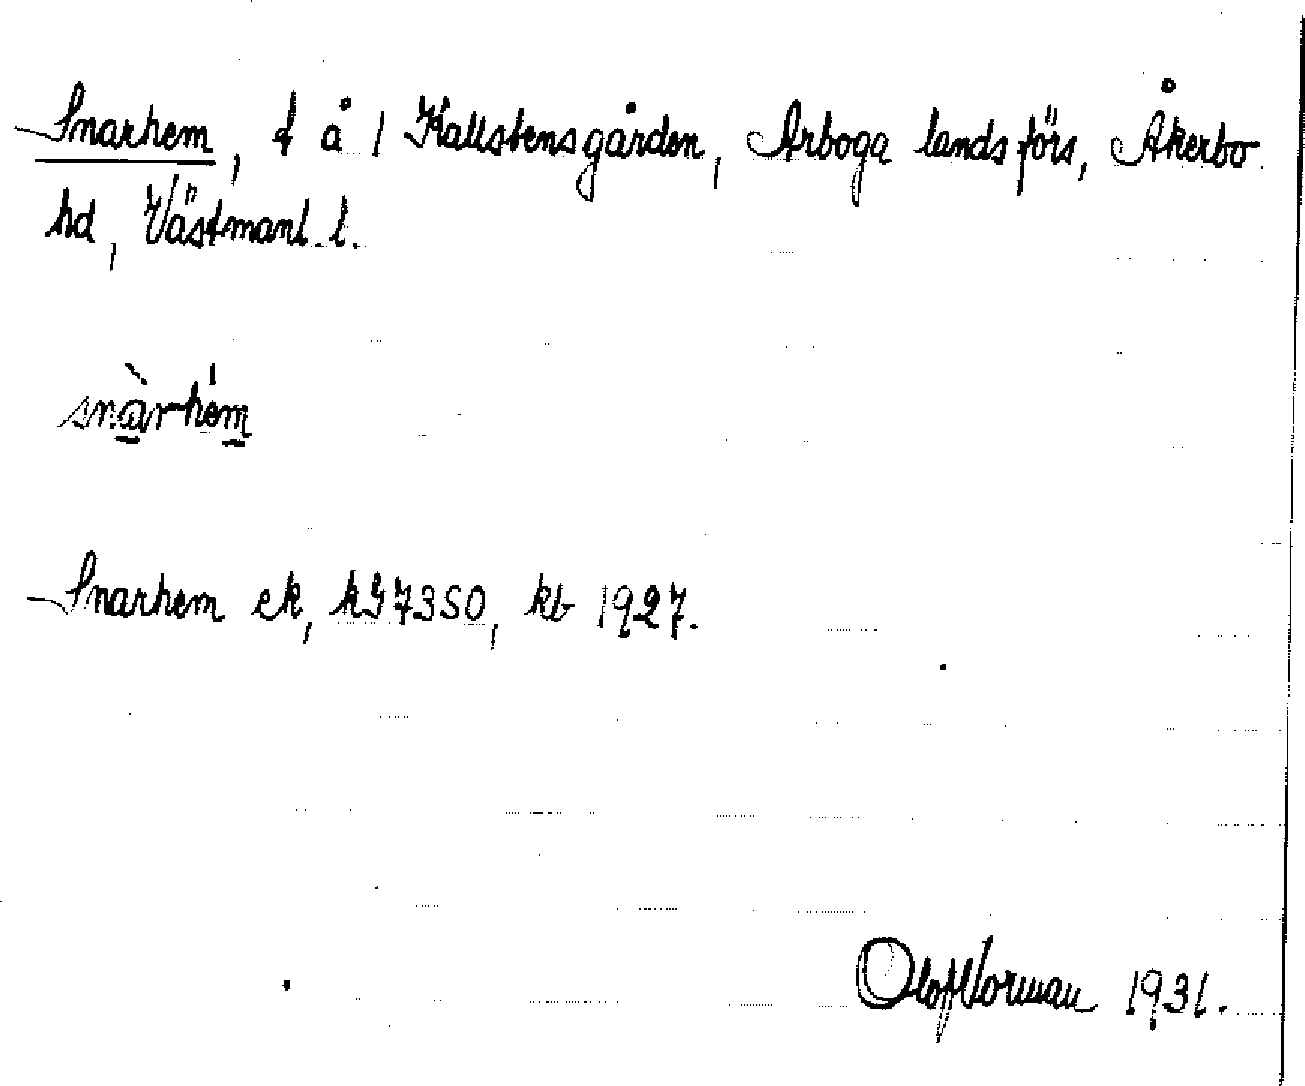 Snarhem, t å 1 Kallstensgården, Arboga landsförs, Åkerbo
hd, Västmanl. l.
snàrhém
Snarhem ek, kJ7350, kb 1927.
Olof Norman 1931.